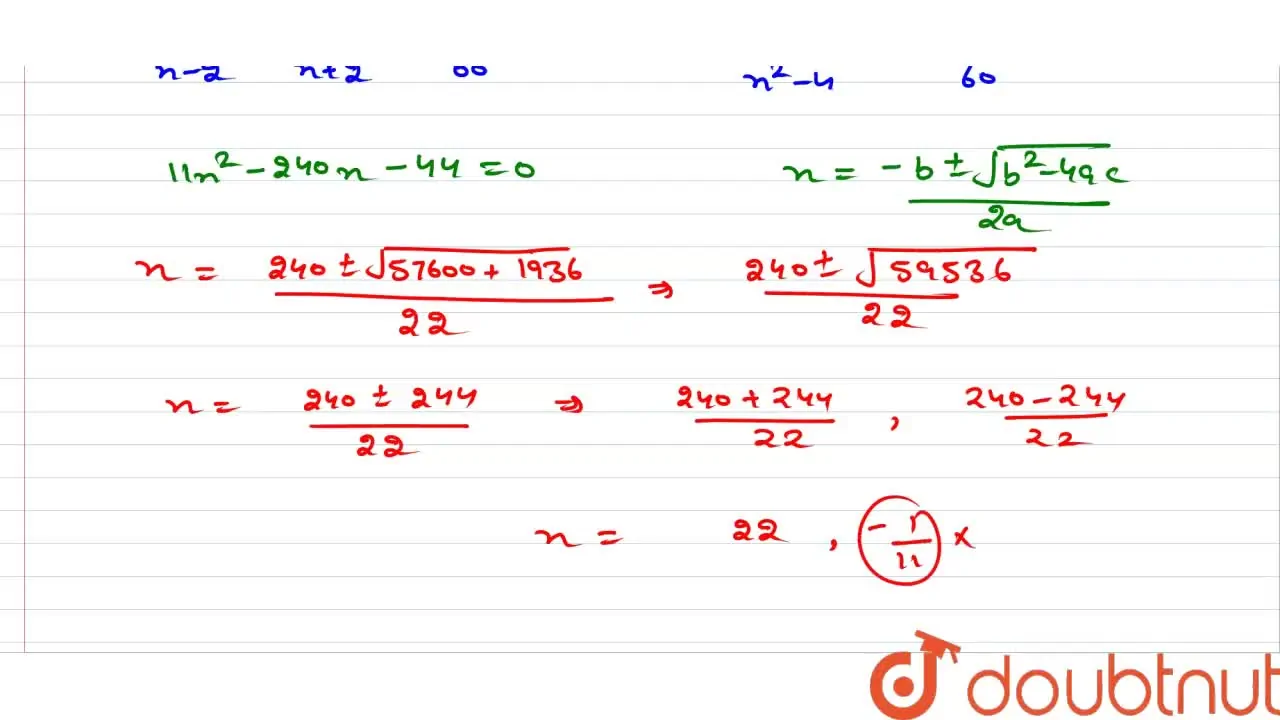 n-2 n+2 60 n²-4 60
11n² - 240n - 44 = 0 n = -b ± √b²-4ac / 2a
n = 240 ± √57600 + 1936 / 22 ⇒ 240 ± √59536 / 22
n = 240 ± 244 / 22 ⇒ 240 + 244 / 22 , 240 - 244 / 22
n = 22 , - / 11 ×
doubtnut